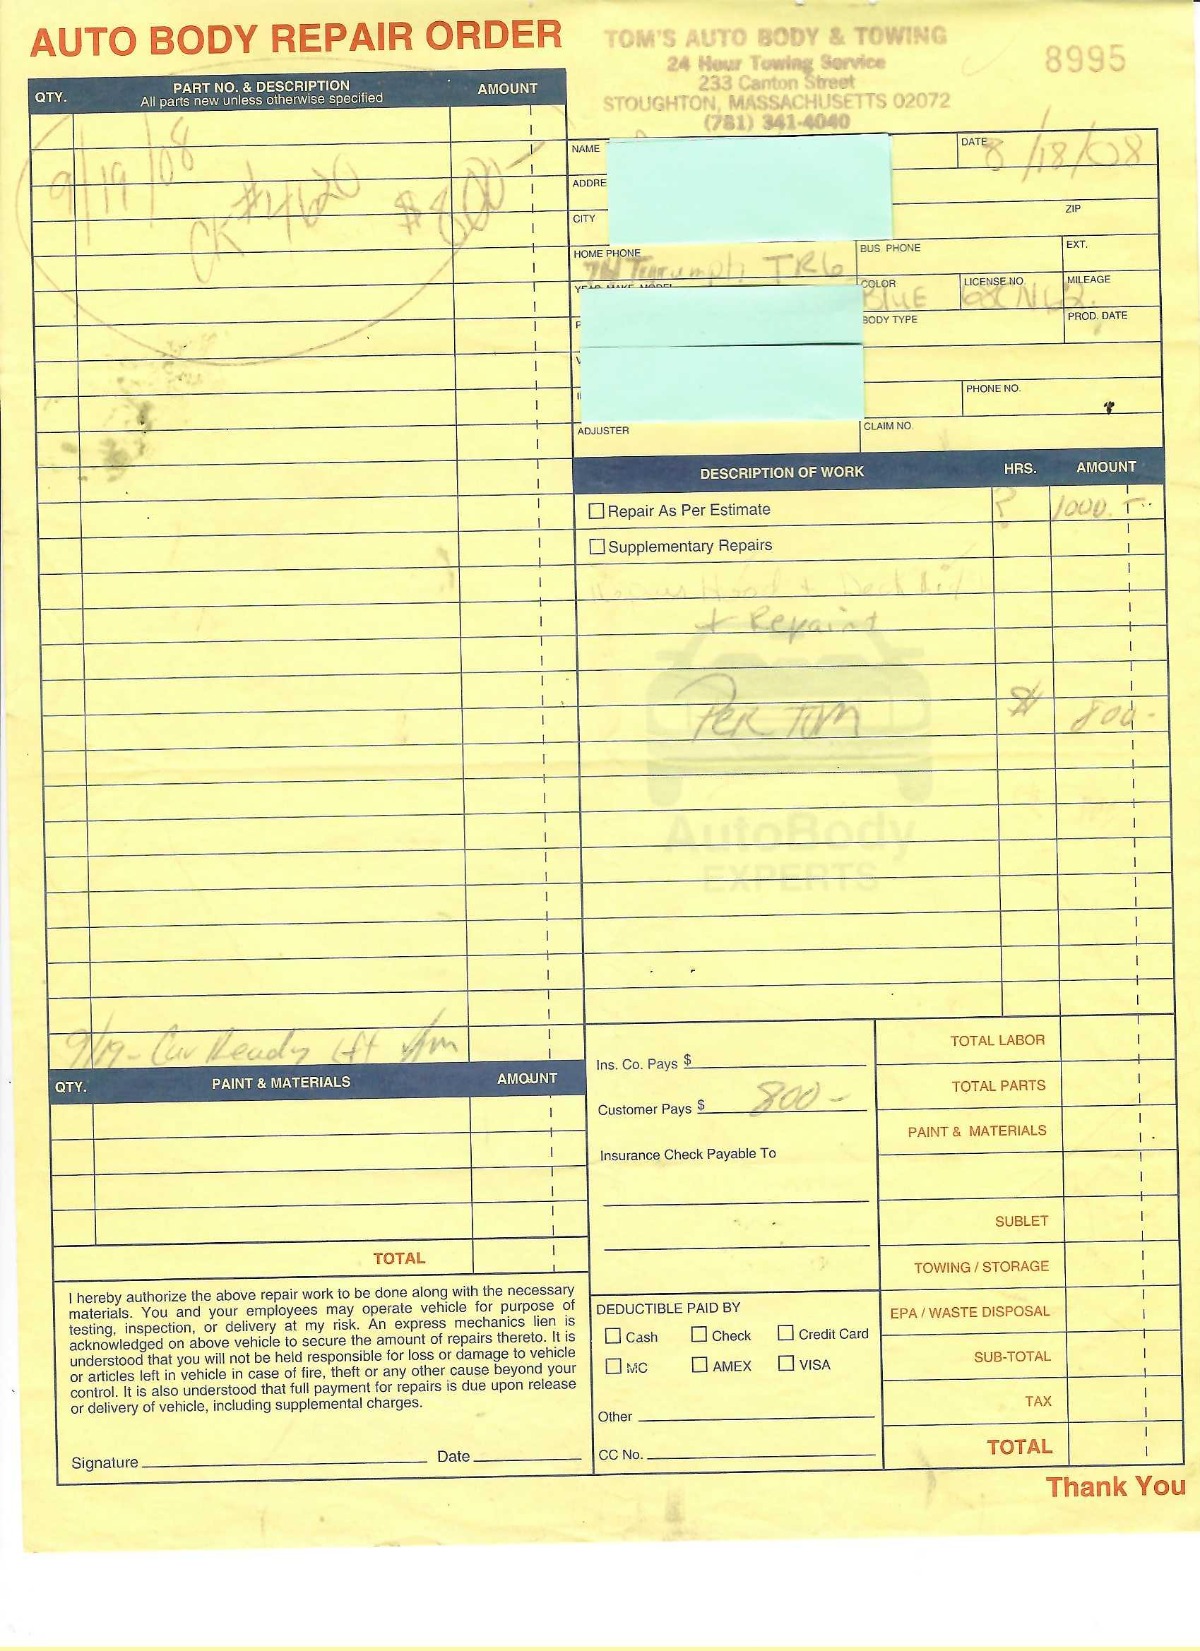 AUTO BODY REPAIR ORDER
TOM'S AUTO BODY & TOWING
24 Hour Towing Service
233 Canton Street
STOUGHTON, MASSACHUSETTS 02072
(781) 341-4040
8995
QTY. PART NO. & DESCRIPTION AMOUNT
All parts new unless otherwise specified
9/19/08
CK #4620 $800-
9/19- Car Ready Lft
QTY. PAINT & MATERIALS AMOUNT
TOTAL
I hereby authorize the above repair work to be done along with the necessary
materials. You and your employees may operate vehicle for purpose of
testing, inspection, or delivery at my risk. An express mechanics lien is
acknowledged on above vehicle to secure the amount of repairs thereto. It is
understood that you will not be held responsible for loss or damage to vehicle
or articles left in vehicle in case of fire, theft or any other cause beyond your
control. It is also understood that full payment for repairs is due upon release
or delivery of vehicle, including supplemental charges.
Signature Date
NAME DATE 8/18/08
ADDRE
CITY ZIP
HOME PHONE BUS PHONE EXT.
Triumph TR6
COLOR LICENSE NO. MILEAGE
BLUE
BODY TYPE PROD. DATE
PHONE NO.
ADJUSTER CLAIM NO.
DESCRIPTION OF WORK HRS. AMOUNT
Repair As Per Estimate ? 1000
Supplementary Repairs
Hood +
+ Repaint
PER TOM $ 800-
AutoBody
EXPERTS
Ins. Co. Pays $
Customer Pays $ 800-
Insurance Check Payable To
DEDUCTIBLE PAID BY
Cash Check Credit Card
MC AMEX VISA
Other
CC No.
TOTAL LABOR
TOTAL PARTS
PAINT & MATERIALS
SUBLET
TOWING / STORAGE
EPA / WASTE DISPOSAL
SUB-TOTAL
TAX
TOTAL
Thank You